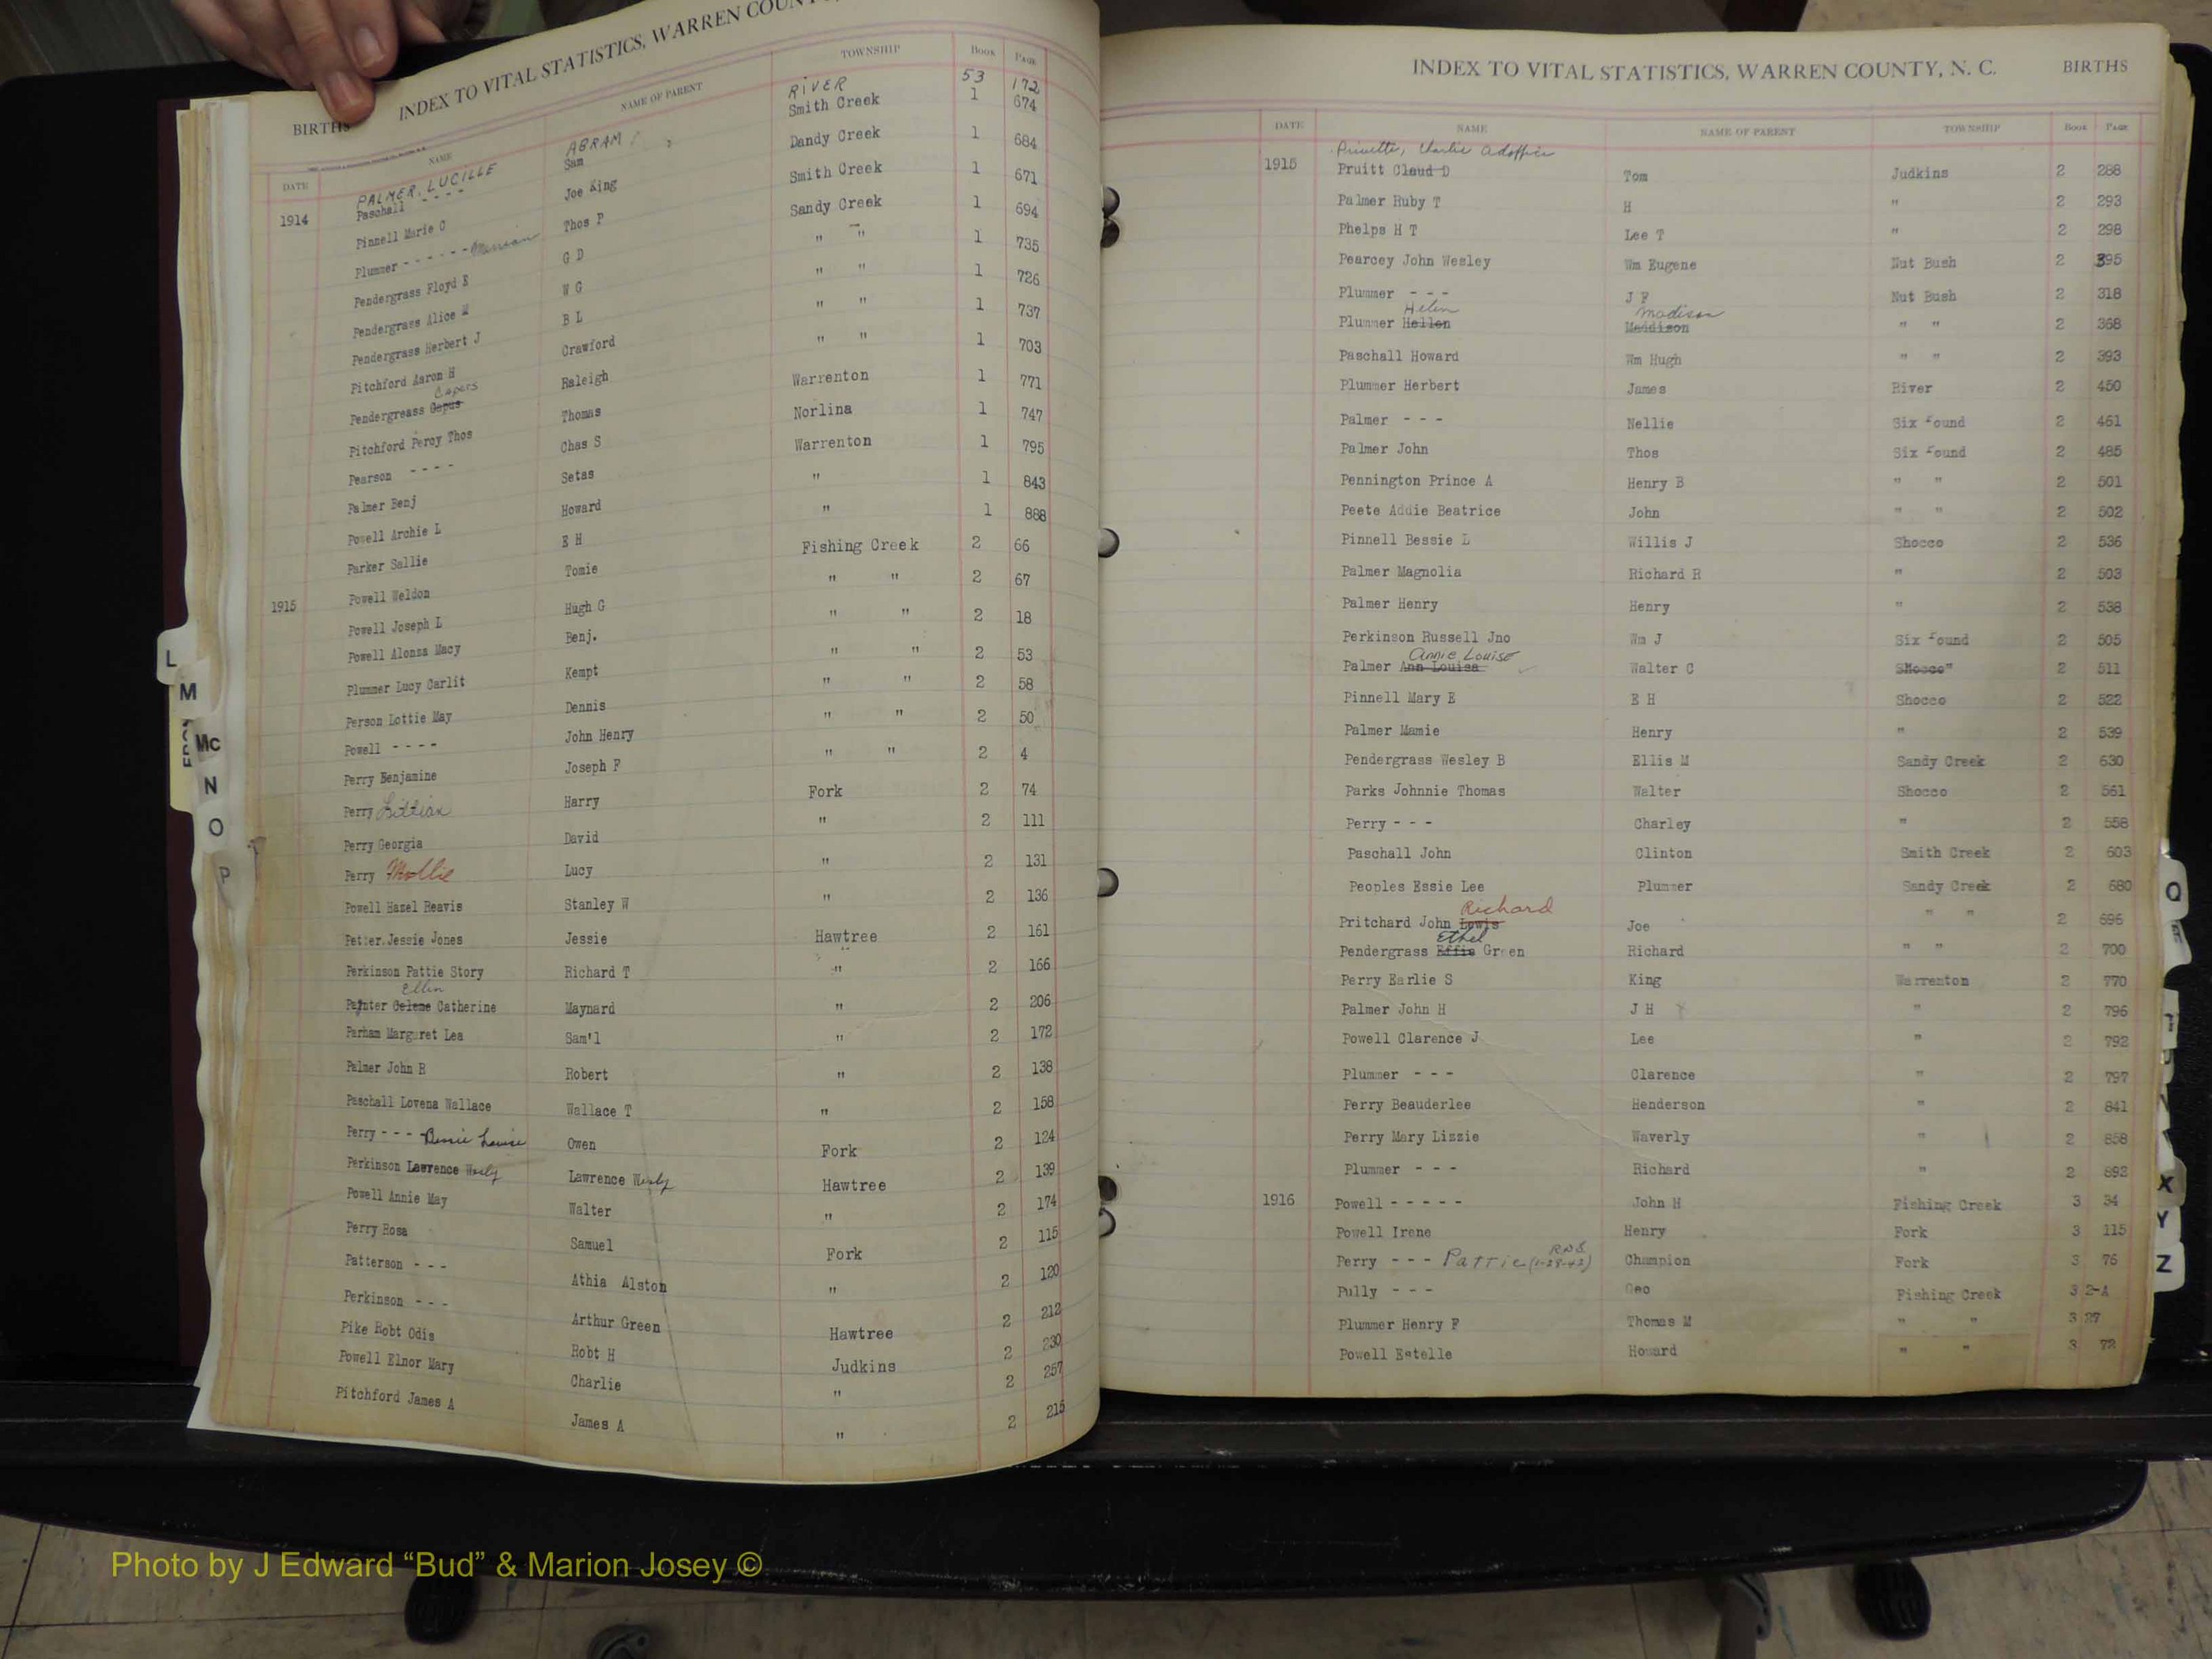 BIRTHS INDEX TO VITAL STATISTICS, WARREN COUNTY,
DATE NAME NAME OF PARENT TOWNSHIP BOOK PAGE
PALMER, LUCILLE ABRAM RIVER 53 172
1914 Paschall - - - - Sam Smith Creek 1 674
Pinnell Marie C Joe King Dandy Creek 1 684
Plummer - - - - - - Thos P Smith Creek 1 671
Pendergrass Floyd E G D Sandy Creek 1 694
Pendergrass Alice M W G " " 1 735
Pendergrass Herbert J B L " " 1 726
Pitchford Aaron H Crawford " " 1 737
Capers
Pendergreass Gepus Raleigh " " 1 703
Pitchford Percy Thos Thomas Warrenton 1 771
Pearson - - - - Chas S Norlina 1 747
Palmer Benj Setas Warrenton 1 795
Powell Archie L Howard " 1 843
Parker Sallie E H " 1 888
1915 Powell Weldon Tomie Fishing Creek 2 66
Powell Joseph L Hugh G " " 2 67
Powell Alonza Macy Benj. " " 2 18
Plummer Lucy Carlit Kempt " " 2 53
Person Lottie May Dennis " " 2 58
Powell - - - - John Henry " " 2 50
Perry Benjamine Joseph F " " 2 4
Perry Lillian Harry Fork 2 74
Perry Georgia David " 2 111
Perry Mollie Lucy " 2 131
Powell Hazel Reavis Stanley W " 2 136
Petter Jessie Jones Jessie Hawtree 2 161
Perkinson Pattie Story Richard T " 2 166
Ellen
Paynter Celeme Catherine Maynard " 2 206
Parham Margaret Lea Sam'l " 2 172
Palmer John R Robert " 2 138
Paschall Lovena Wallace Wallace T " 2 158
Perry - - - Bessie Louise Owen Fork 2 124
Perkinson Lawrence Wesly Lawrence Wesly Hawtree 2 139
Powell Annie May Walter " 2 174
Perry Rosa Samuel Fork 2 115
Patterson - - - Athia Alston " 2 120
Perkinson - - - Arthur Green Hawtree 2 212
Pike Robt Odis Robt H Judkins 2 230
Powell Elnor Mary Charlie " 2 257
Pitchford James A James A " 2 215
INDEX TO VITAL STATISTICS, WARREN COUNTY, N. C. BIRTHS
DATE NAME NAME OF PARENT TOWNSHIP BOOK PAGE
Privette, Charlie
1915 Pruitt Claud D Tom Judkins 2 288
Palmer Ruby T H " 2 293
Phelps H T Lee T " 2 298
Pearcey John Wesley Wm Eugene Nut Bush 2 395
Plummer - - - J F Nut Bush 2 318
Helen Madison
Plummer Hellen Maddison " " 2 368
Paschall Howard Wm Hugh " " 2 393
Plummer Herbert James River 2 450
Palmer - - - Nellie Six Pound 2 461
Palmer John Thos Six Pound 2 485
Pennington Prince A Henry B " " 2 501
Peete Addie Beatrice John " " 2 502
Pinnell Bessie L Willis J Shocco 2 536
Palmer Magnolia Richard R " 2 503
Palmer Henry Henry " 2 538
Perkinson Russell Jno Wm J Six Pound 2 505
Annie Louise
Palmer Ann Louisa Walter C Shocco" 2 511
Pinnell Mary E E H Shocco 2 522
Palmer Mamie Henry " 2 539
Pendergrass Wesley B Ellis M Sandy Creek 2 630
Parks Johnnie Thomas Walter Shocco 2 561
Perry - - - Charley " 2 558
Paschall John Clinton Smith Creek 2 603
Peoples Essie Lee Plummer Sandy Creek 2 680
Richard
Pritchard John Lewis Joe " " 2 696
Ethel
Pendergrass Effie Green Richard " " 2 700
Perry Earlie S King Warrenton 2 770
Palmer John H J H " 2 796
Powell Clarence J Lee " 2 792
Plummer - - - Clarence " 2 797
Perry Beauderlee Henderson " 2 841
Perry Mary Lizzie Waverly " 2 858
Plummer - - - Richard " 2 893
1916 Powell - - - - - John H Fishing Creek 3 34
Powell Irene Henry Fork 3 115
Perry - - - Pattie Champion Fork 3 76
Pully - - - Geo Fishing Creek 3 2-A
Plummer Henry F Thomas M " " 3 27
Powell Estelle Howard " " 3 72
L
M
Mc
N
O
P
Q
X
Y
Z
Photo by J Edward “Bud” & Marion Josey ©